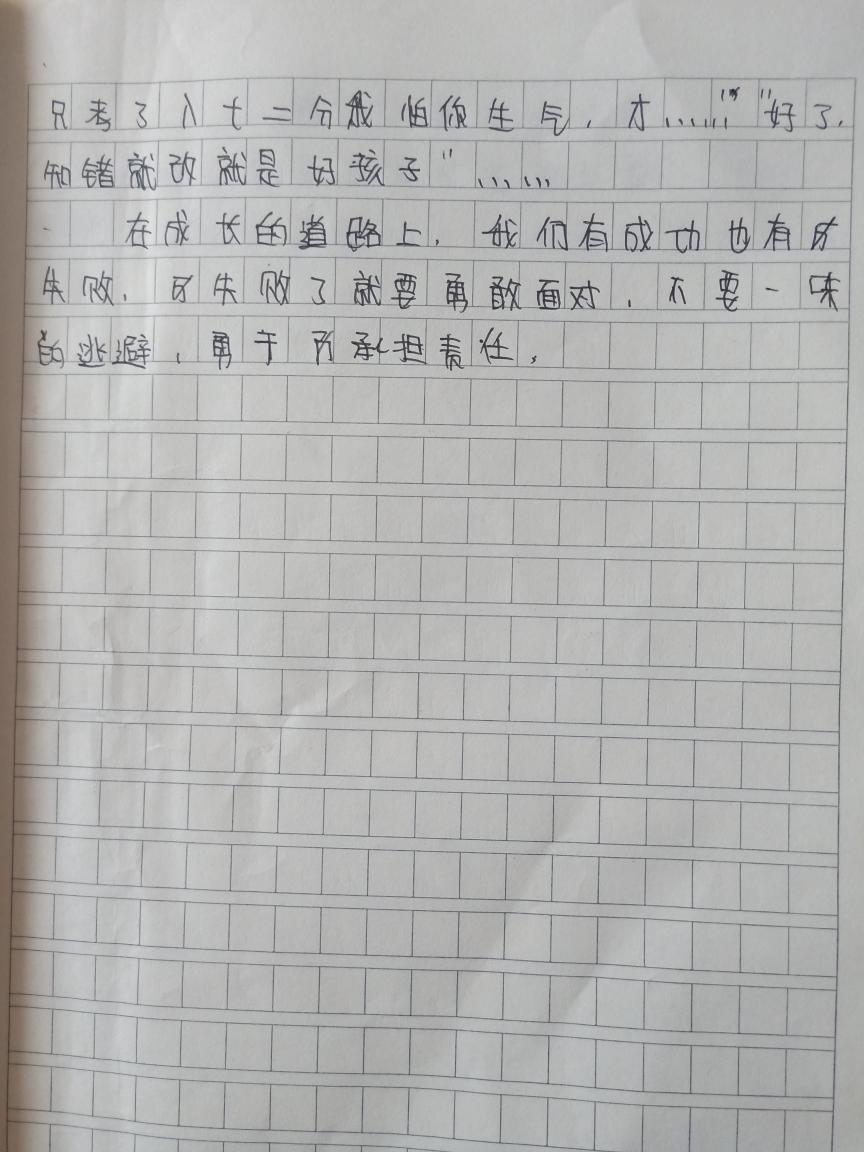 只考了八十二分我怕你生气，才……”“好了，
知错就改就是好孩子”……
在成长的道路上，我们有成功也有
失败，可失败了就要勇敢面对，不要一味
的逃避，勇于承担责任，